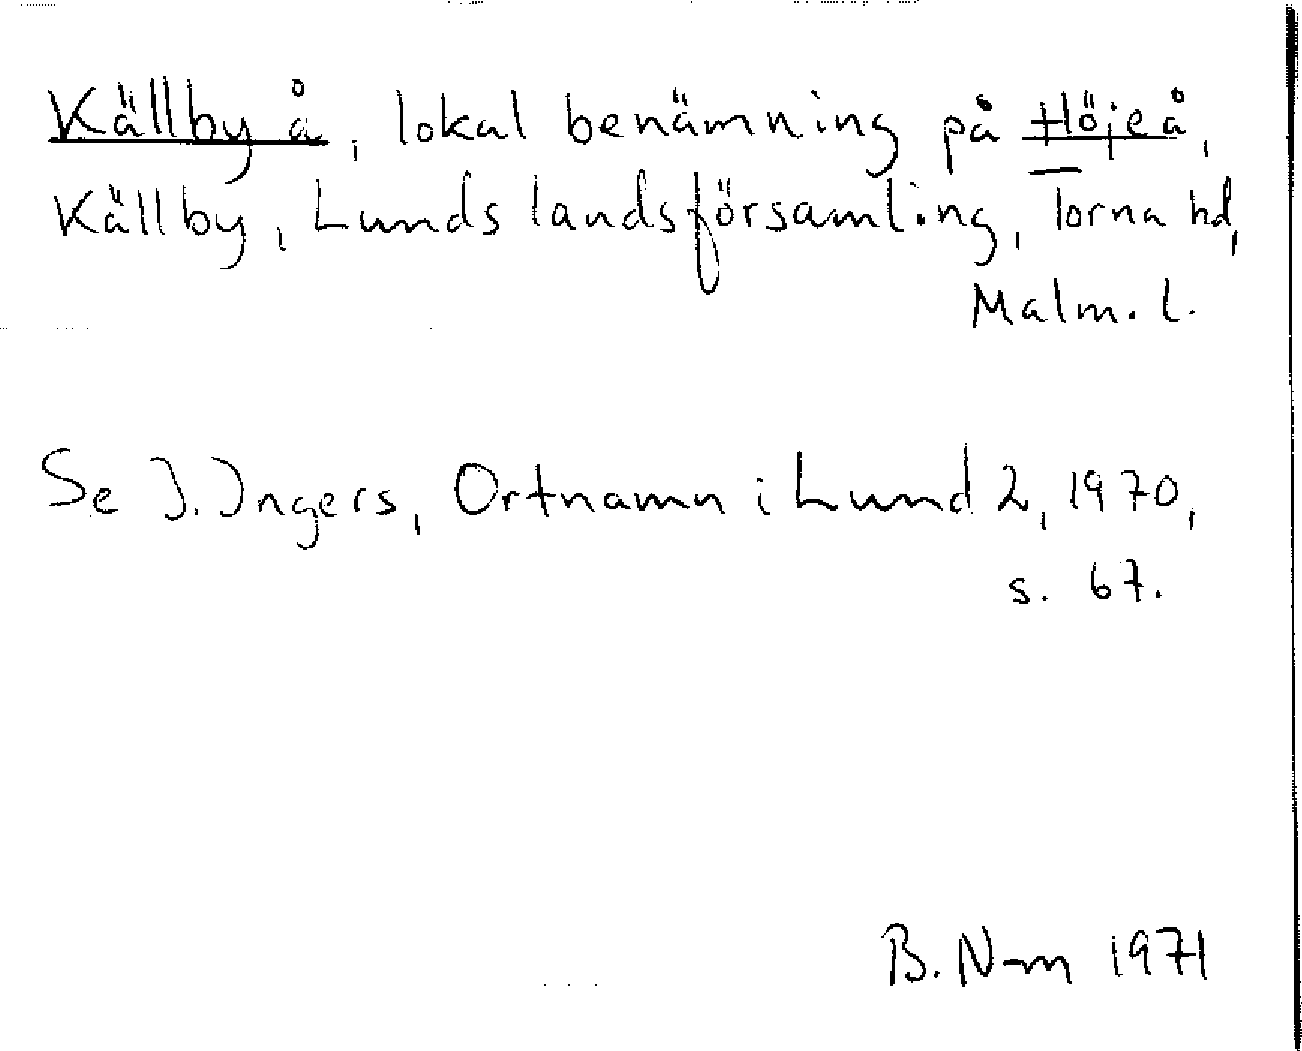 Källby å, lokal benämning på Höjeå,
Källby, Lunds landsförsamling, Torna hd,
Malm. l.
Se J. Ingers, Ortnamn i Lund 2, 1970,
s. 67.
B. N-m 1971